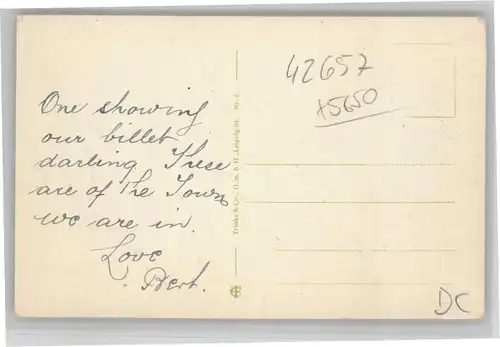 One showing
our billet
darling These
are of the Town
we are in.
Love
Bert.
Trinks & Co., G. m. b. H., Leipzig
42657
15650
DC